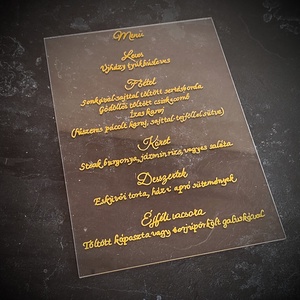 Menü
Leves
Újházy tyúkhúsleves
Főétel
Sonkával, sajttal töltött sertésborda,
Gödöllői töltött csirkecomb
Ízes karaj
(Fűszeres pácolt karaj, sajttal tejföllel sütve)
Köret
Steak burgonya, jázmin rizs, vegyes saláta
Desszertek
Esküvői torta, házi apró sütemények
Éjféli vacsora
Töltött káposzta vagy borjúpörkölt galuskával